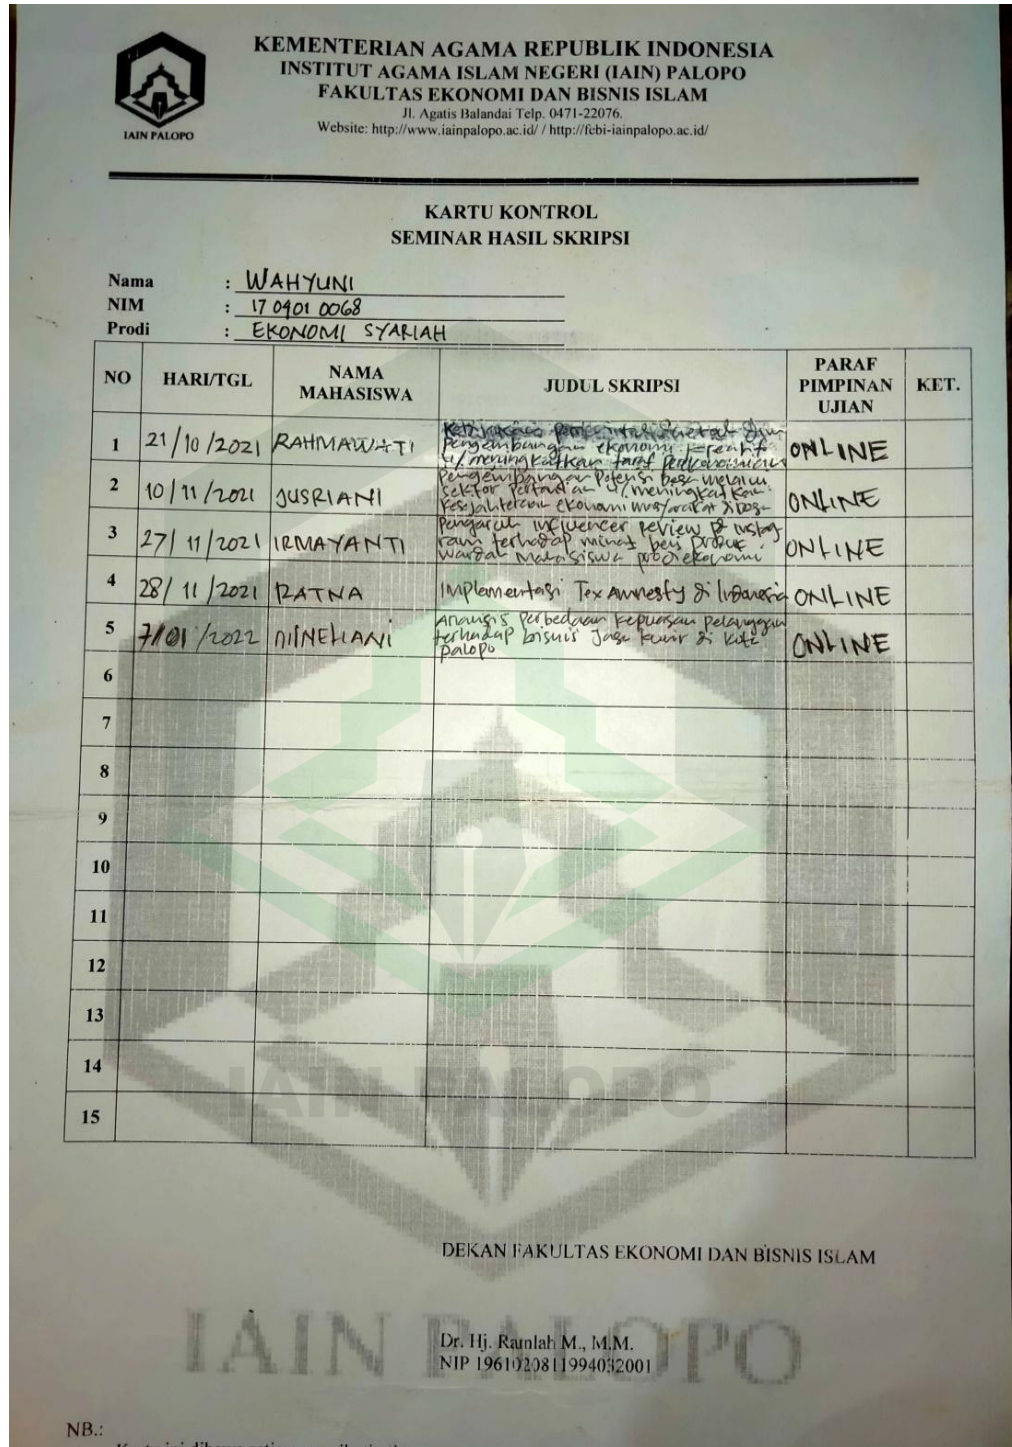 KEMENTERIAN AGAMA REPUBLIK INDONESIA
INSTITUT AGAMA ISLAM NEGERI (IAIN) PALOPO
FAKULTAS EKONOMI DAN BISNIS ISLAM
Jl. Agatis Balandai Telp. 0471-22076.
Website: http://www.iainpalopo.ac.id/ / http://febi-iainpalopo.ac.id/
IAIN PALOPO
KARTU KONTROL
SEMINAR HASIL SKRIPSI
Nama : WAHYUNI
NIM : 17 0401 0068
Prodi : EKONOMI SYARIAH
NO HARI/TGL NAMA MAHASISWA JUDUL SKRIPSI PARAF PIMPINAN UJIAN KET.
1 21/10/2021 RAHMAWATI ONLINE
pengembangan ekonomi kreatif
u/meningkatkan taraf perekonomian
2 10/11/2021 JUSRIANI ONLINE
pengembangan potensi desa melalui
sektor pertanian u/meningkatkan
kesejahteraan ekonomi masyarakat di desa
3 27/11/2021 IRMAYANTI ONLINE
pengaruh influencer review di instag
ram terhadap minat beli produk
wardah mahasiswa prodi ekonomi
4 28/11/2021 RATNA Implementasi Tex Amnesty di Indonesia ONLINE
5 7/01/2022 ONLINE
Analisis perbedaan kepuasan pelanggan
terhadap bisnis jasa kurir di kota
palopo
6
7
8
9
10
11
12
13
14
15
IAIN PALOPO
DEKAN FAKULTAS EKONOMI DAN BISNIS ISLAM
IAIN PALOPO
Dr. Hj. Ramlah M., M.M.
NIP 196102081994032001
NB.: